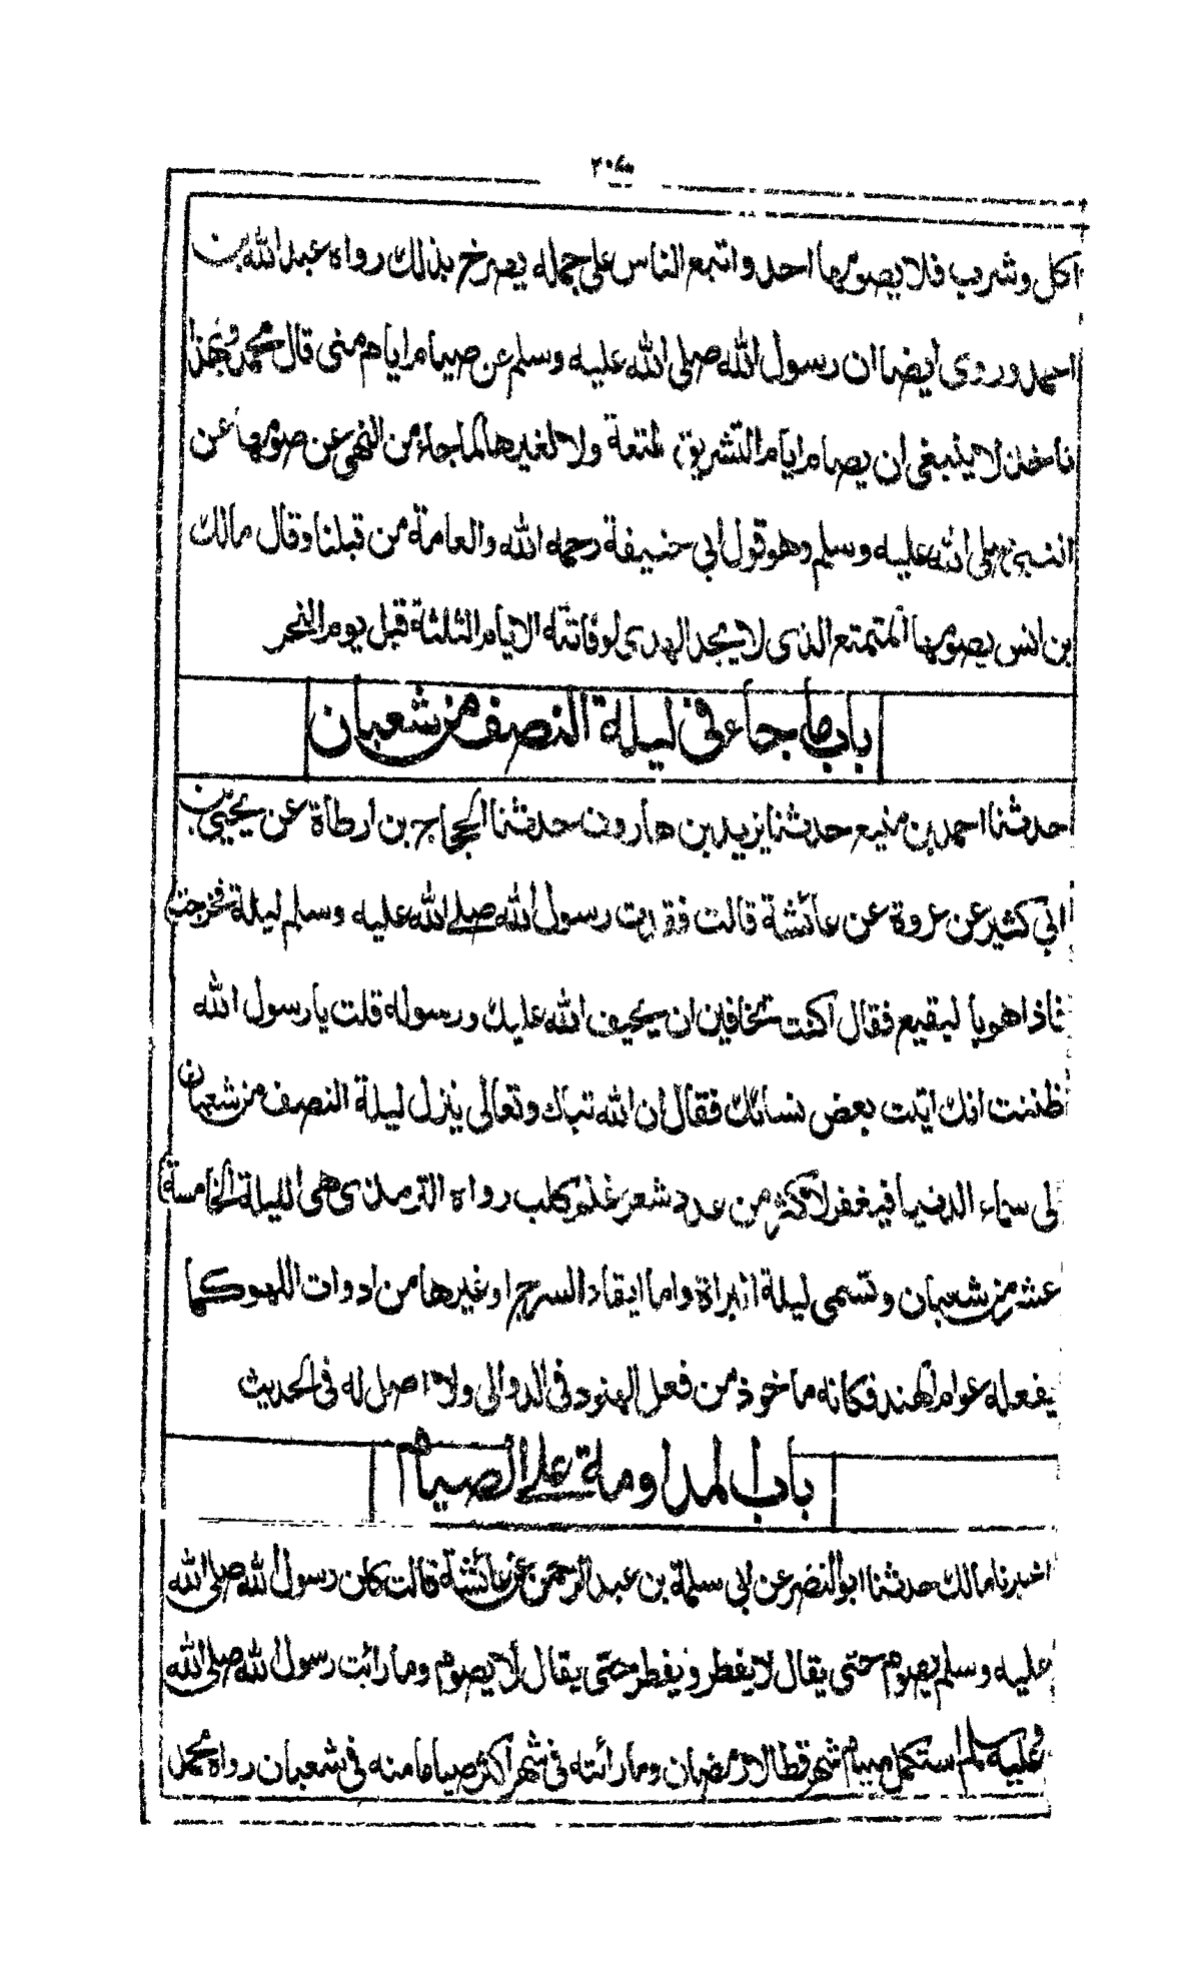 اكل وشرب فلا يصومها احد واتبع الناس على جمله يصرخ بذلك رواه عبد الله بن
احمد وروى ايضا ان رسول الله صلى الله عليه وسلم عن صيام ايام منى قال محمد وبهذا
ناخذ لا ينبغى ان يصام ايام التشريق لمتعة ولا لغيرها لما جاء من النهى عن صومها عن
النبى صلى الله عليه وسلم وهو قول ابي حنيفة رحمه الله والعامة من قبلنا وقال مالك
بن انس يصومها المتمتع الذى لا يجد الهدى لو فاتته الايام الثلثة قبل يوم النحر
باب ما جاء فى ليلة النصف من شعبان
حدثنا احمد بن منيع حدثنا يزيد بن هارون حدثنا الحجاج بن ارطاة عن يحيى بن
ابي كثير عن عروة عن عائشة قالت فقدت رسول الله صلے الله عليه وسلم ليلة فخرجت
فاذا هو بالبقيع فقال اكنت تخافين ان يحيف الله عليك ورسوله قلت يا رسول الله
ظننت انك اتيت بعض نسائك فقال ان الله تبارك وتعالى ينزل ليلة النصف من شعبان
الى سماء الدنيا فيغفر لاكثر من عدد شعر غنم كلب رواه الترمذى هى الليلة الخامسة
عشر من شعبان وتسمى ليلة البراة واما ايقاد السرج او غيرها من ادوات اللهو كما
يفعله عوام الهند فكانه ماخوذ من فعل الهنود فى الدوالى ولا اصل له فى الحديث
باب المداومة علے الصيام
اخبرنا مالك حدثنا ابو النضر عن ابى سلمة بن عبد الرحمن عن عائشة قالت كان رسول الله صلى الله
عليه وسلم يصوم حتى يقال لا يفطر ويفطر حتى يقال لا يصوم وما رائت رسول الله صلى الله
عليه وسلم استكمل صيام شهر قط الا رمضان وما رائته فى شهر اكثر صياما منه فى شعبان رواه محمد